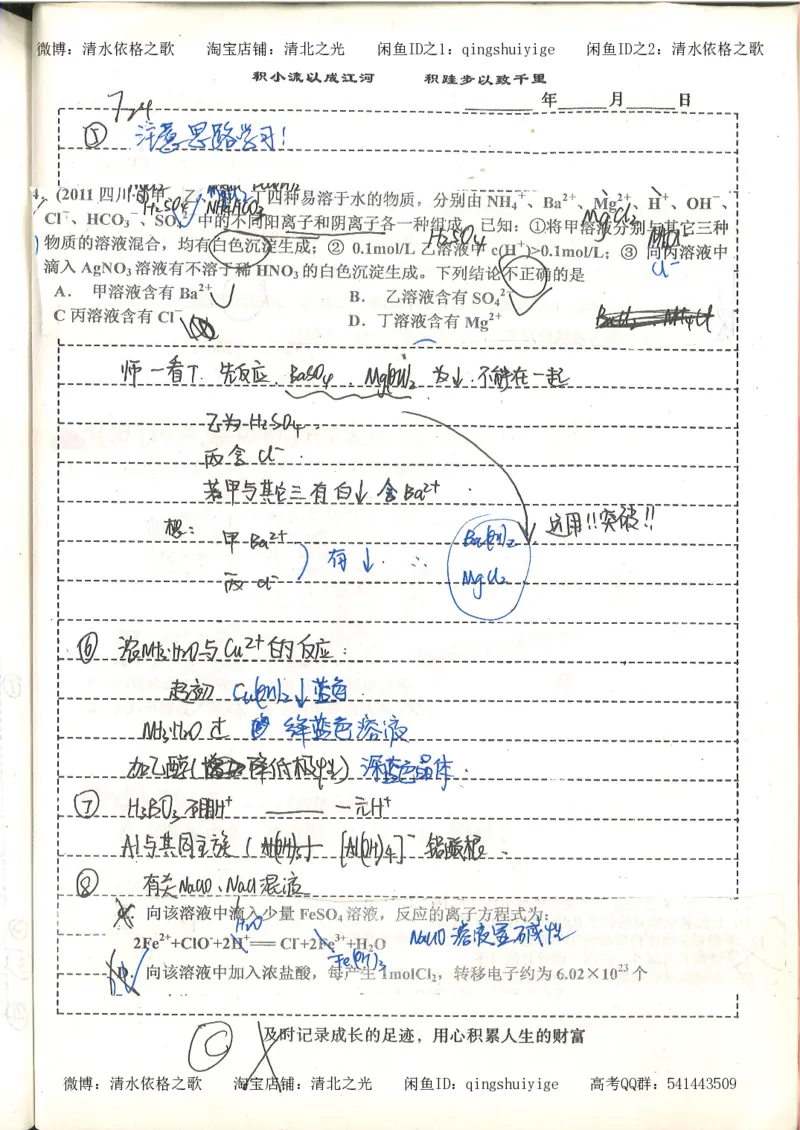 微博：清水依格之歌 淘宝店铺：清北之光 闲鱼ID之1：qingshuiyige 闲鱼ID之2：清水依格之歌
积小流以成江河 积跬步以致千里
年 月 日
7.24
⑤ 注意思路学习！
(2011 四川 甲、乙、 四种易溶于水的物质，分别由 NH₄⁺、Ba²⁺、Mg²⁺、H⁺、OH⁻、
H₂SO₄ NH₄HCO₃ MgCl₂
Cl⁻、HCO₃⁻、SO₄²⁻ 中的不同阳离子和阴离子各一种组成。已知：①将甲溶液分别与其它三种
H₂SO₄
物质的溶液混合，均有白色沉淀生成；② 0.1mol/L 乙溶液中 c(H⁺)>0.1mol/L；③ 向丙溶液中
Cl⁻
滴入 AgNO₃ 溶液有不溶于稀 HNO₃ 的白色沉淀生成。下列结论不正确的是
A． 甲溶液含有 Ba²⁺ B． 乙溶液含有 SO₄²⁻
C 丙溶液含有 Cl⁻ D．丁溶液含有 Mg²⁺
师 一看丁．先反应．BaSO₄、Mg(OH)₂ 为↓．不能在一起
乙为 H₂SO₄．
丙含 Cl⁻．
若甲与其它三有白↓ 含Ba²⁺．
运用!!突破!!
想： 甲 Ba²⁺
丙 Cl⁻ ) 有↓． ∴ Ba(OH)₂
MgCl₂
⑥ 浓NH₃·H₂O与Cu²⁺的反应：
起初 Cu(OH)₂↓ 蓝色
NH₃·H₂O 过 绛蓝色溶液
加乙醇(降低极性) 深蓝色晶体．
⑦ H₃BO₃ H⁺ —— 一元H⁺
Al与其同主族 ( [Al(OH)₄]⁻ 铝酸根．
⑧ 有关NaClO、NaCl混液
向该溶液中滴入少量 FeSO₄ 溶液，反应的离子方程式为：
H₂O
2Fe²⁺+ClO⁻+2H⁺══Cl⁻+2Fe³⁺+H₂O NaClO溶液呈碱性
Fe(OH)₃
D．向该溶液中加入浓盐酸，每产生 1molCl₂，转移电子约为 6.02×10²³ 个
及时记录成长的足迹，用心积累人生的财富
微博：清水依格之歌 淘宝店铺：清北之光 闲鱼ID：qingshuiyige 高考QQ群：541443509